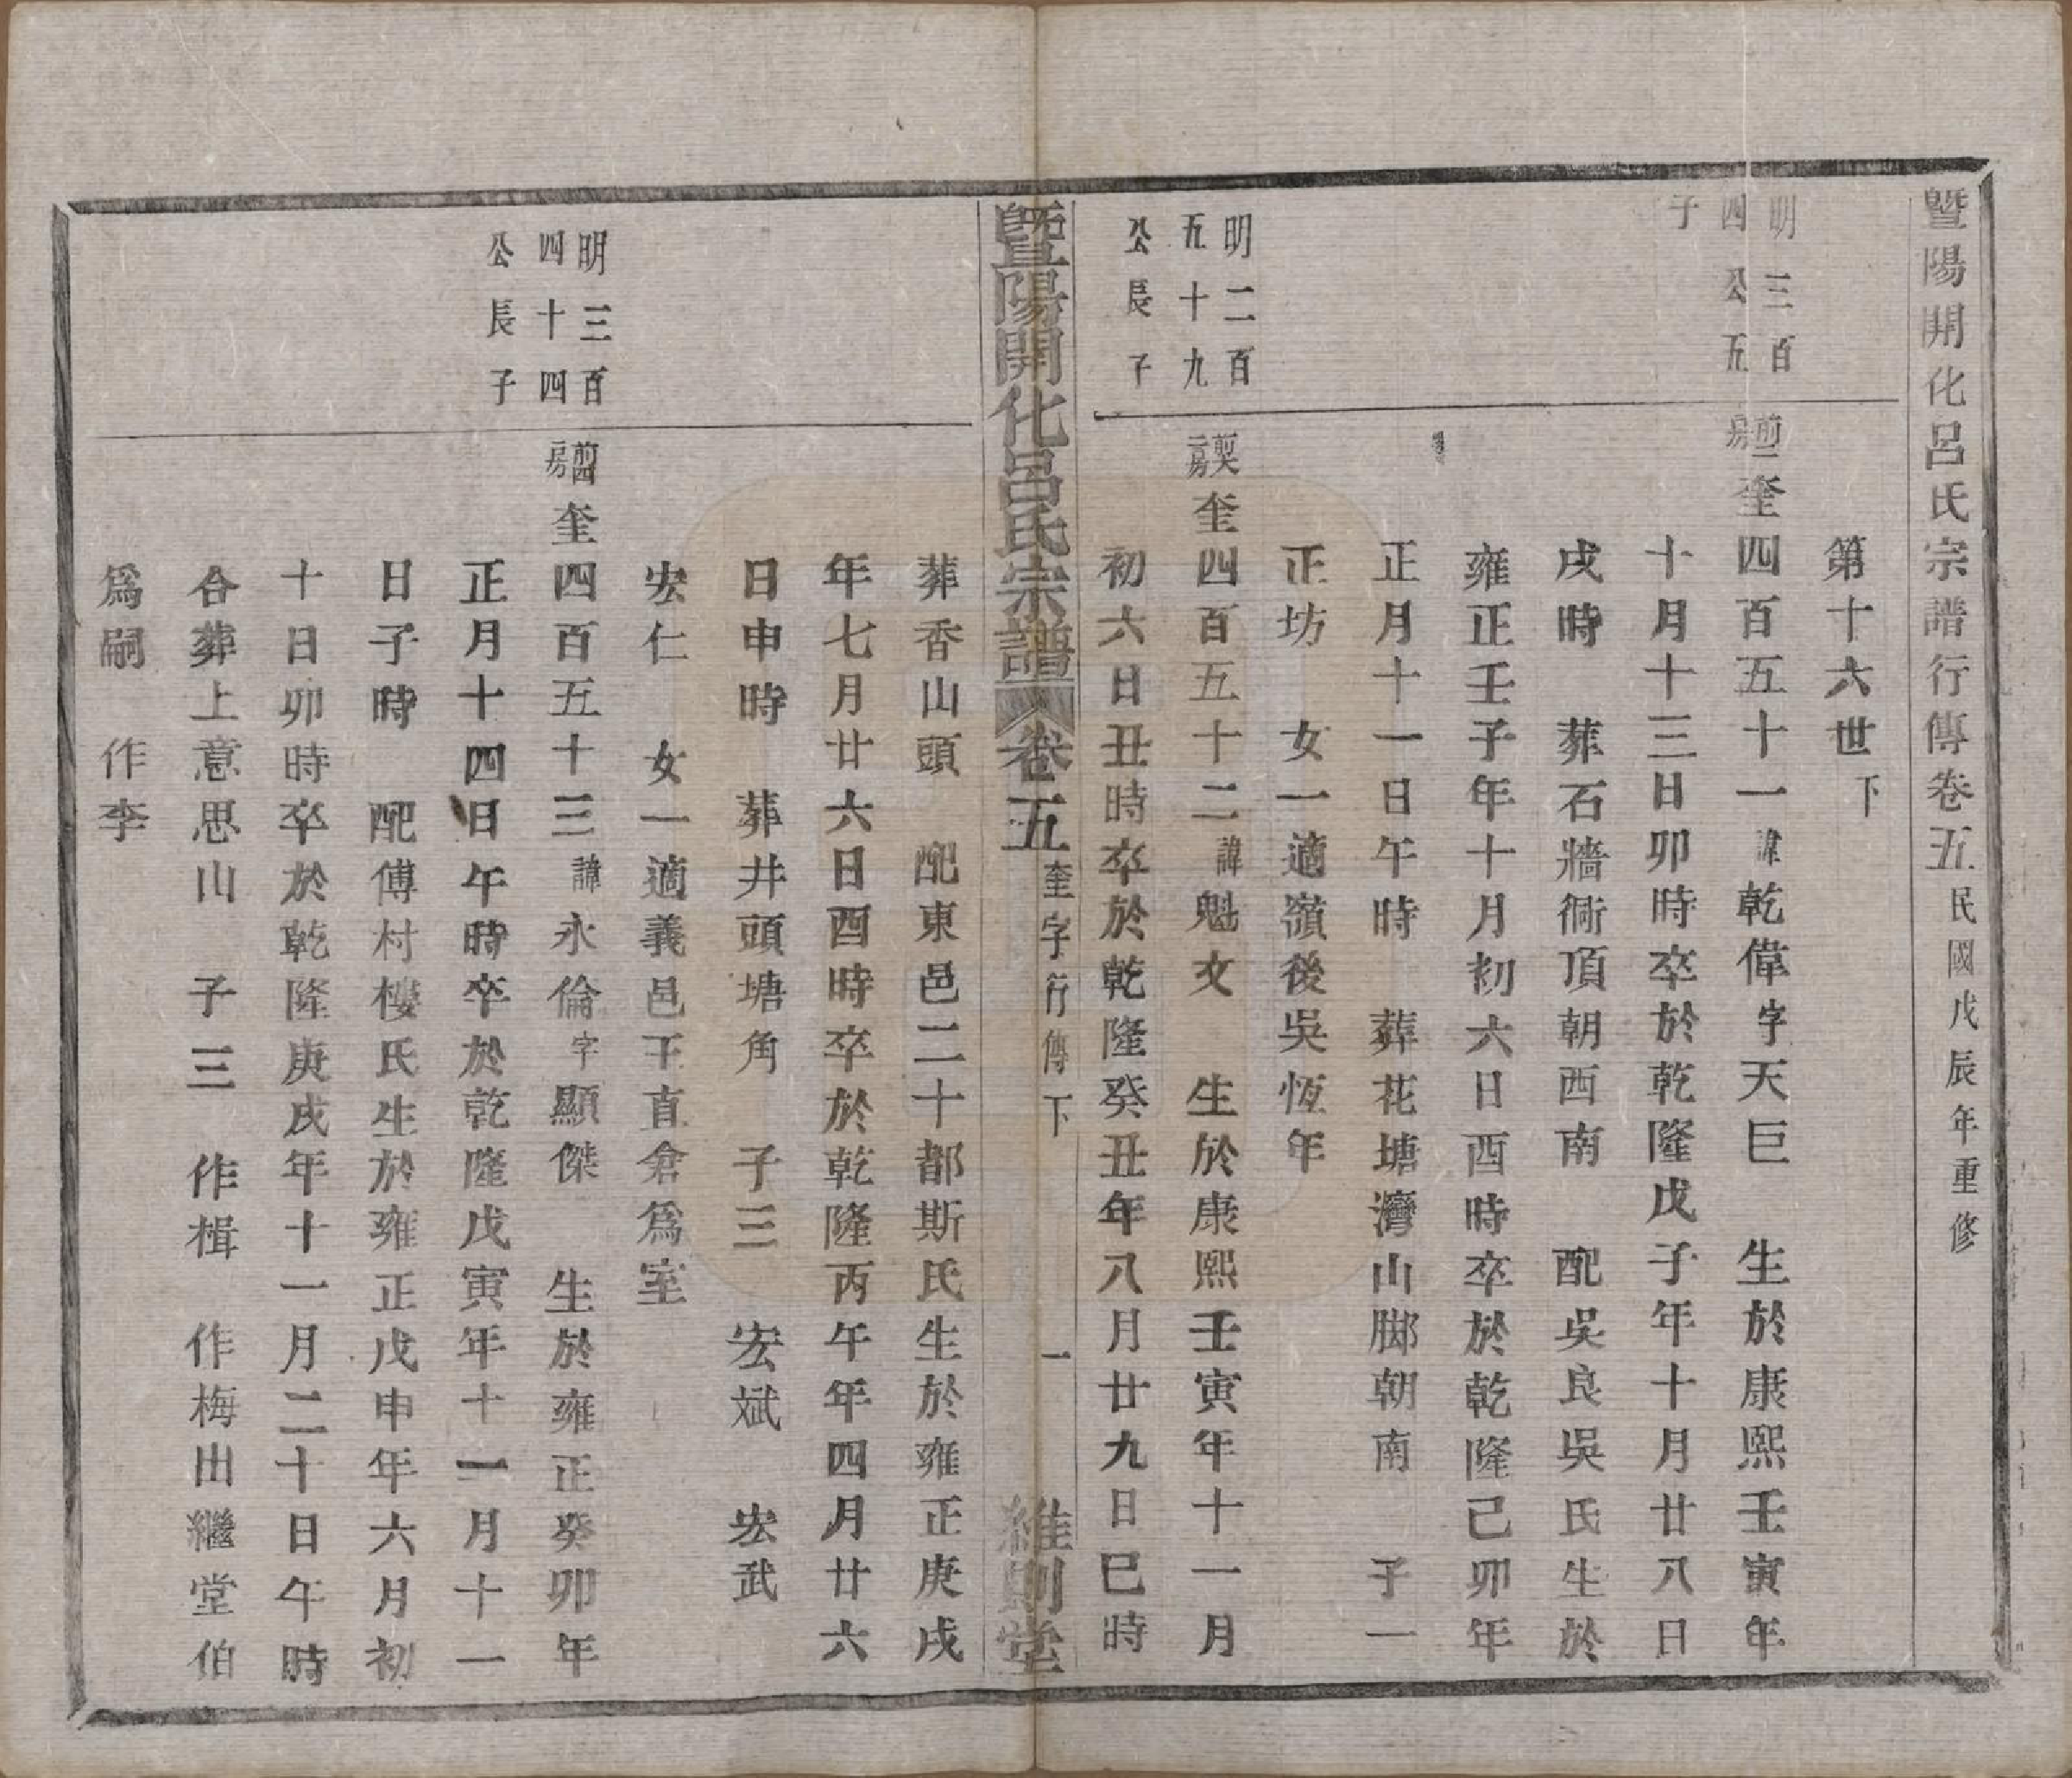 暨陽開化呂氏宗譜行傳卷五民國戊辰年重修
第十六世下
明三百
四公五
子
煎一
房奎四百五十一諱乾偉字天巨　生於康熙壬寅年
十月十三日卯時卒於乾隆戊子年十月廿八日
戌時　葬石牆衕頂朝西南　配吳良吳氏生於
雍正壬子年十月初六日酉時卒於乾隆己卯年
正月十一日午時　葬花塘灣山脚朝南　子一
正坊　女一適嶺後吳恆年
明二百
五十九
公長子
二房奎四百五十二諱魁文　生於康熙壬寅年十一月
初六日丑時卒於乾隆癸丑年八月廿九日巳時
暨陽開化呂氏宗譜　卷五　奎字行傳下　一　維則堂
葬香山頭　配東邑二十都斯氏生於雍正庚戌
年七月廿六日酉時卒於乾隆丙午年四月廿六
日申時　葬井頭塘角　子三　宏斌　宏武
宏仁　女一適義邑干直倉爲室
明三百
四十四
公長子
煎四
二房奎四百五十三諱永倫字顯傑　生於雍正癸卯年
正月十四日午時卒於乾隆戊寅年十一月十一
日子時　配傅村樓氏生於雍正戊申年六月初
十日卯時卒於乾隆庚戌年十一月二十日午時
合葬上意思山　子三　作楫　作梅出繼堂伯
爲嗣　作李